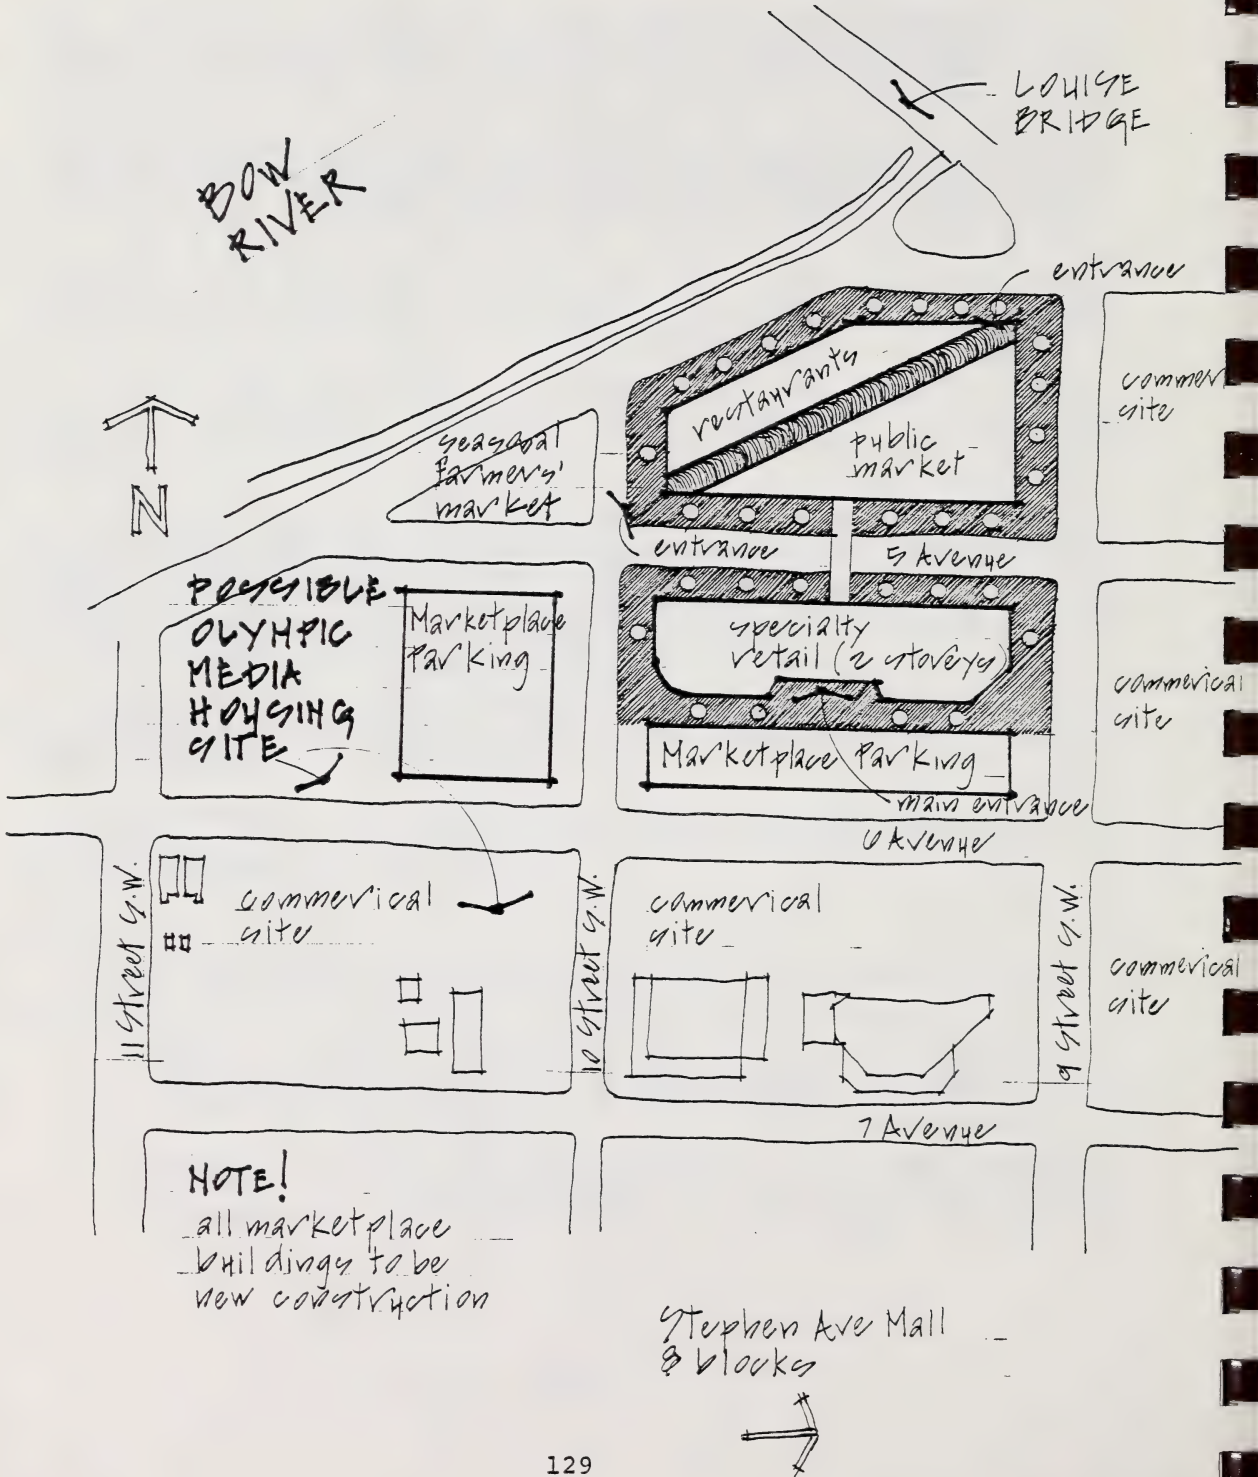 LOUISE
BRIDGE
BOW
RIVER
entrance
restaurants
commer
site
seasoal
farmers'
market
public
market
N
entrance
5 Avenue
POSSIBLE
OLYMPIC
MEDIA
HOUSING
SITE
Marketplace
Parking
specialty
retail (2 storeys)
commerical
site
Marketplace Parking
main entrance
6 Avenue
11 Street S.W.
commerical
site
10 Street S.W.
commerical
site
9 Street S.W.
commerical
site
7 Avenue
NOTE!
all marketplace
buildings to be
new construction
Stephen Ave Mall
8 blocks
129